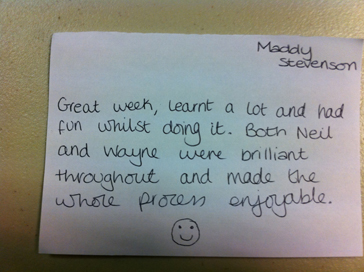 Maddy
Stevenson
Great week, learnt a lot and had
fun whilst doing it. Both Neil
and Wayne were brilliant
throughout and made the
whole process enjoyable.